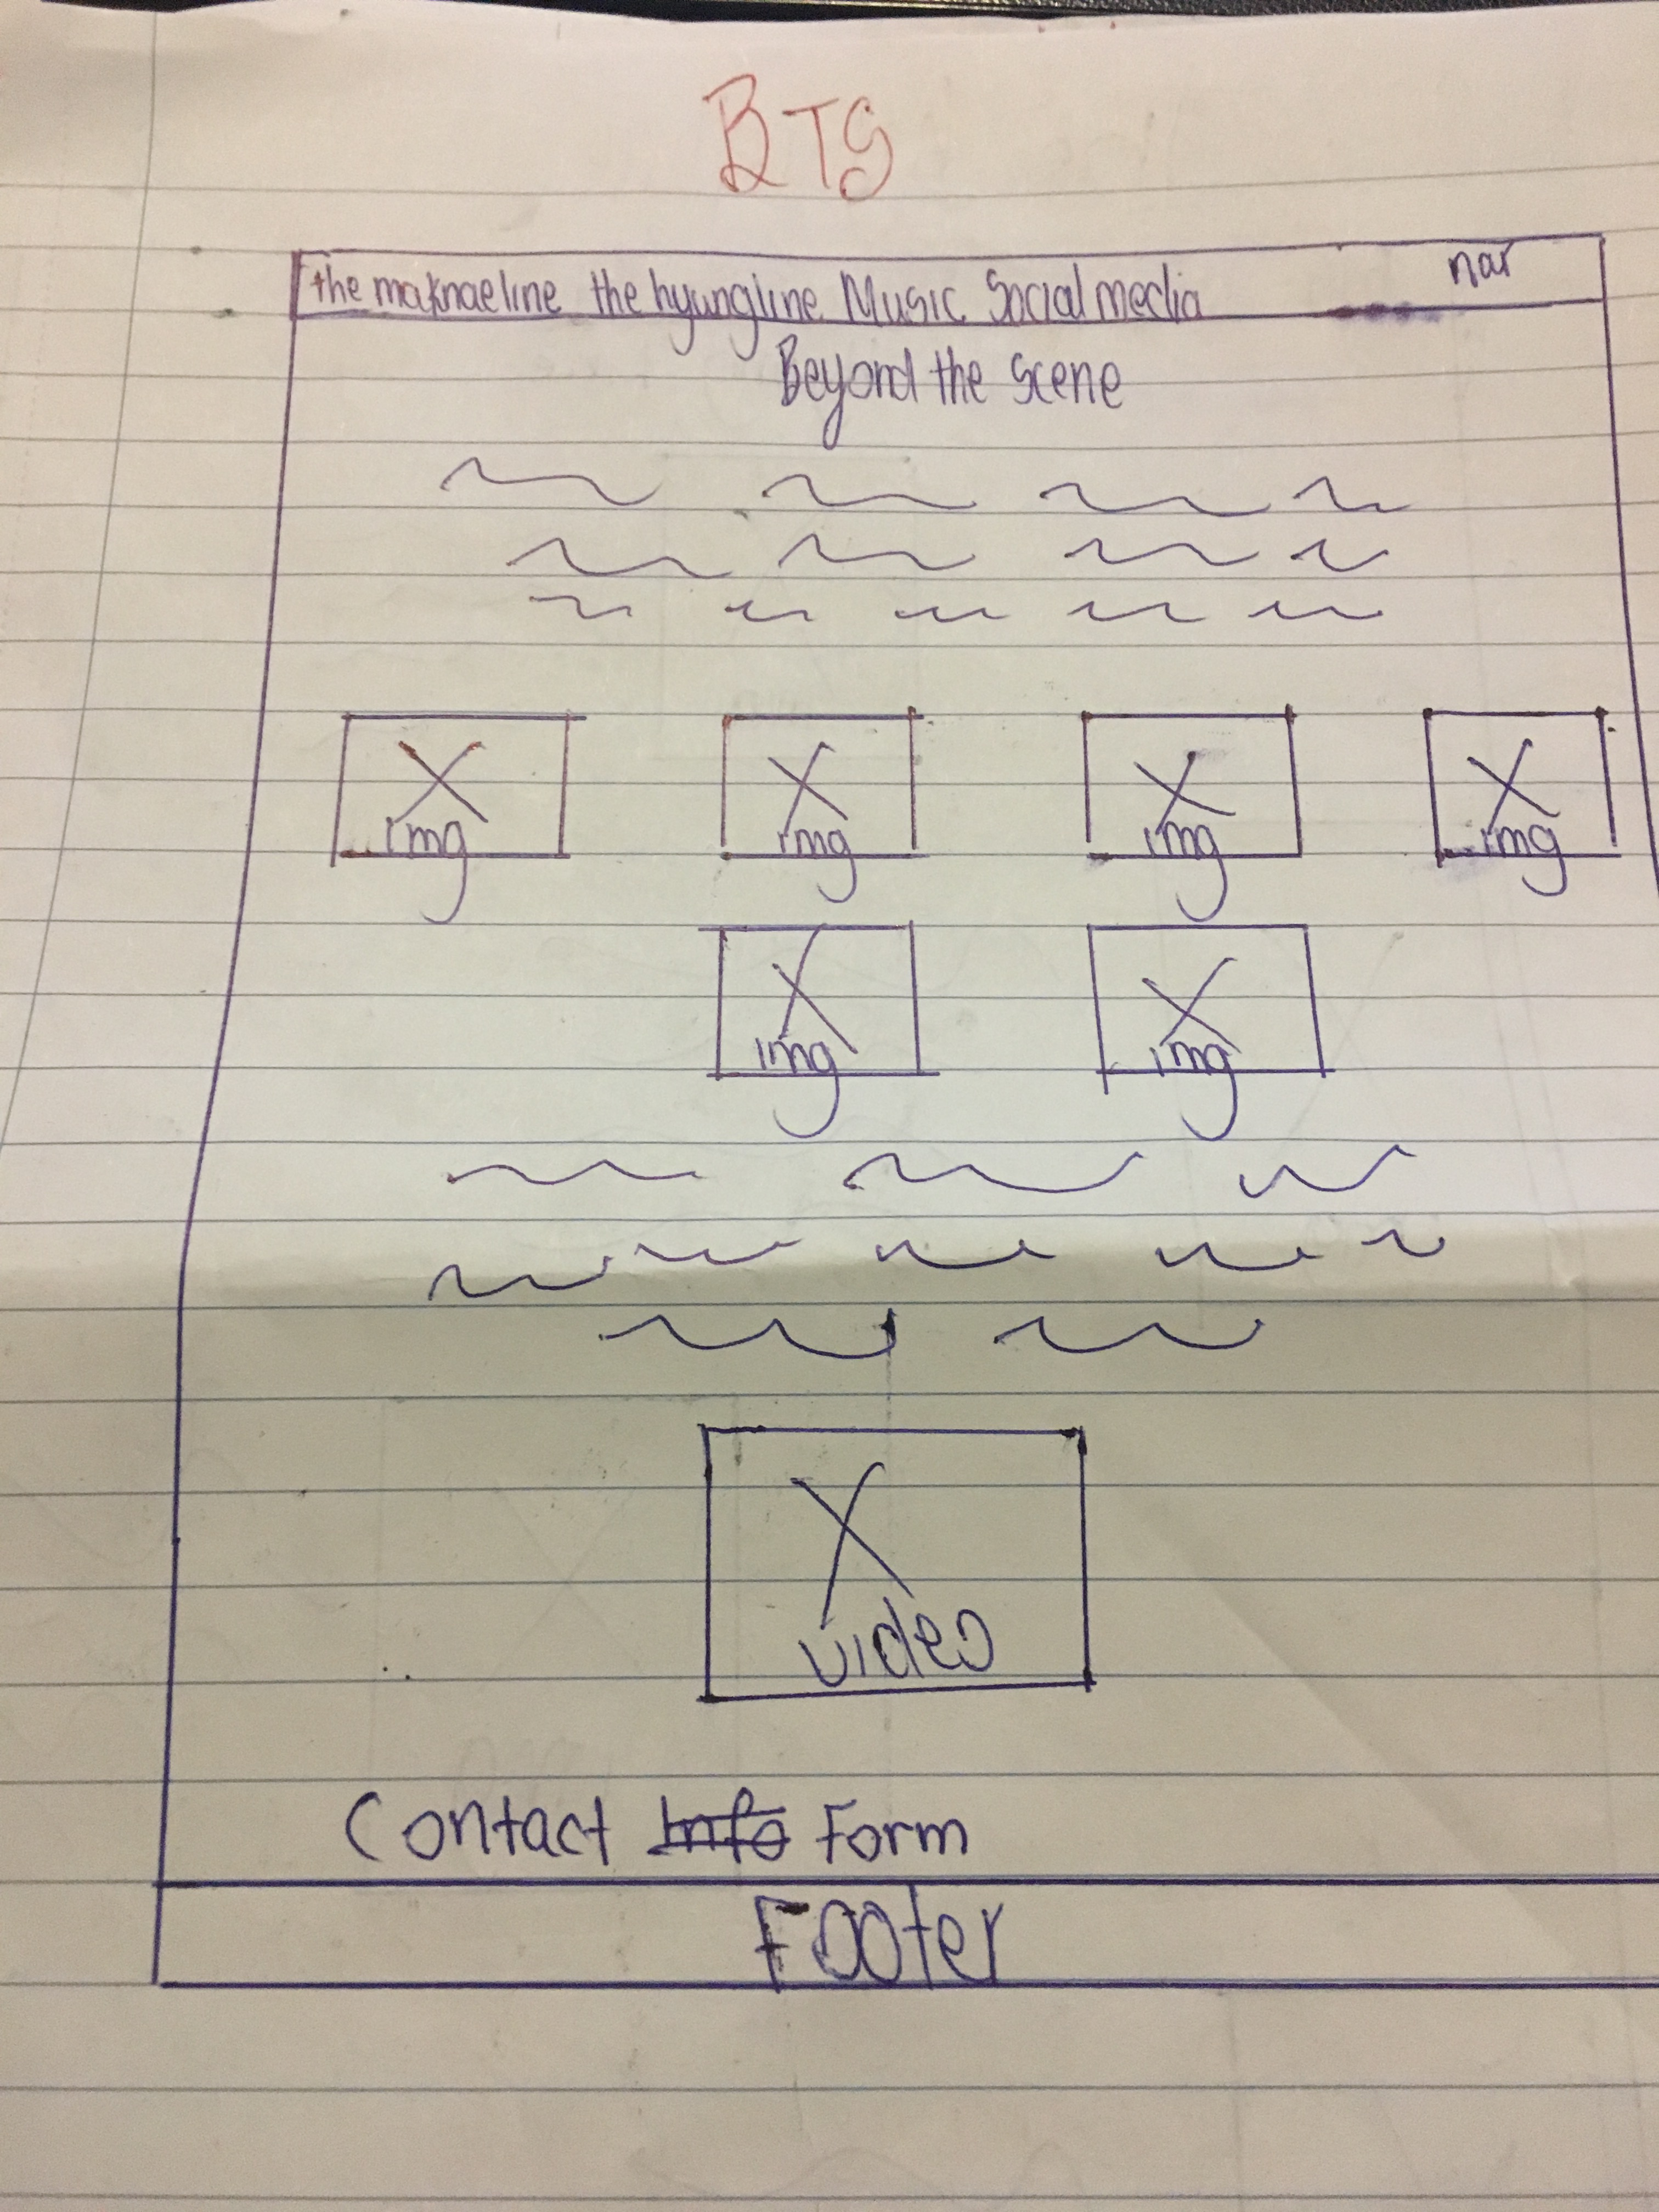 BTS
nav
the maknaeline the hyungline Music Social media
Beyond the Scene
img img img img
img img
video
Contact Info Form
Footer